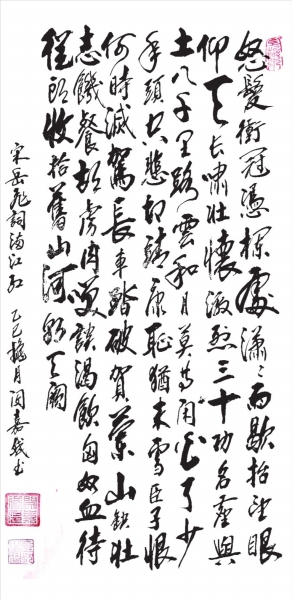 怒髮衝冠憑欄處瀟〻雨歇抬望眼
仰天長嘯壯懷激烈三十功名塵與
土八千里路雲和月莫等閒白了少
年頭空悲切靖康恥猶未雪臣子恨
何時滅駕長車踏破賀蘭山缺壯
志饑餐胡虜肉笑談渴飲匈奴血待
從頭收拾舊山河朝天闕
宋岳飛詞滿江紅 乙巳月嘉书